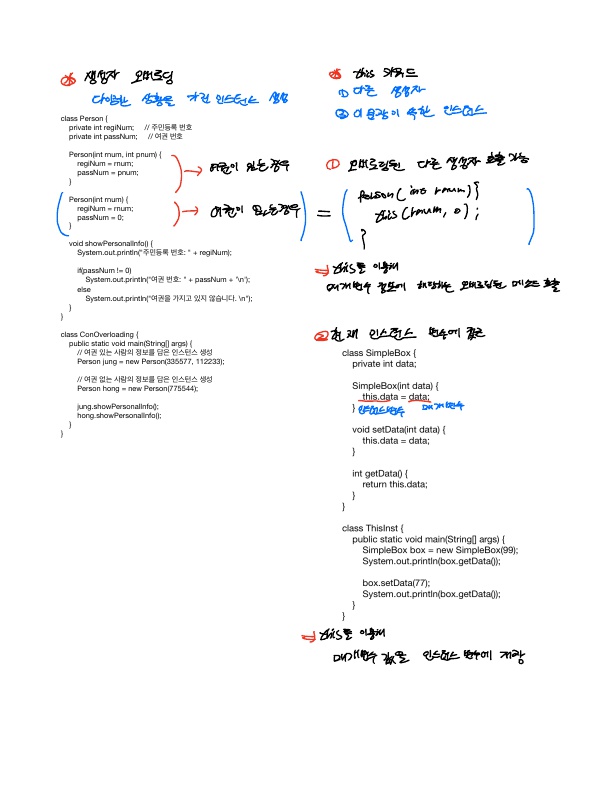 ※ 생성자 오버로딩
다양한 상황을 가진 인스턴스 생성
class Person {
private int regiNum; // 주민등록 번호
private int passNum; // 여권 번호
Person(int rnum, int pnum) {
regiNum = rnum;
passNum = pnum;
}
→ 여권이 있는 경우
Person(int rnum) {
regiNum = rnum;
passNum = 0;
}
→ 여권이 없는 경우
=
person(int rnum) {
this(rnum, 0);
}
void showPersonalInfo() {
System.out.println("주민등록 번호: " + regiNum);
if(passNum != 0)
System.out.println("여권 번호: " + passNum + "\n");
else
System.out.println("여권을 가지고 있지 않습니다. \n");
}
}
class ConOverloading {
public static void main(String[] args) {
// 여권 있는 사람의 정보를 담은 인스턴스 생성
Person jung = new Person(335577, 112233);
// 여권 없는 사람의 정보를 담은 인스턴스 생성
Person hong = new Person(775544);
jung.showPersonalInfo();
hong.showPersonalInfo();
}
}
※ this 키워드
① 다른 생성자
② 이 문장이 속한 인스턴스
① 오버로딩된 다른 생성자 호출 가능
⇒ this를 이용해
매개변수 정보에 해당하는 오버로딩된 메소드 호출
② 현재 인스턴스 변수에 접근
class SimpleBox {
private int data;
SimpleBox(int data) {
this.data = data;
} 인스턴스변수 매개변수
void setData(int data) {
this.data = data;
}
int getData() {
return this.data;
}
}
class ThisInst {
public static void main(String[] args) {
SimpleBox box = new SimpleBox(99);
System.out.println(box.getData());
box.setData(77);
System.out.println(box.getData());
}
}
⇒ this를 이용해
매개변수 값을 인스턴스 변수에 저장